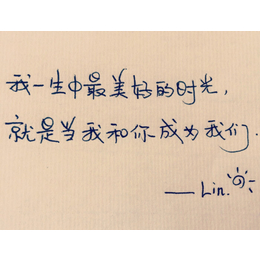 我一生中最美好的时光,
就是当我和你成为我们.
——Lin.